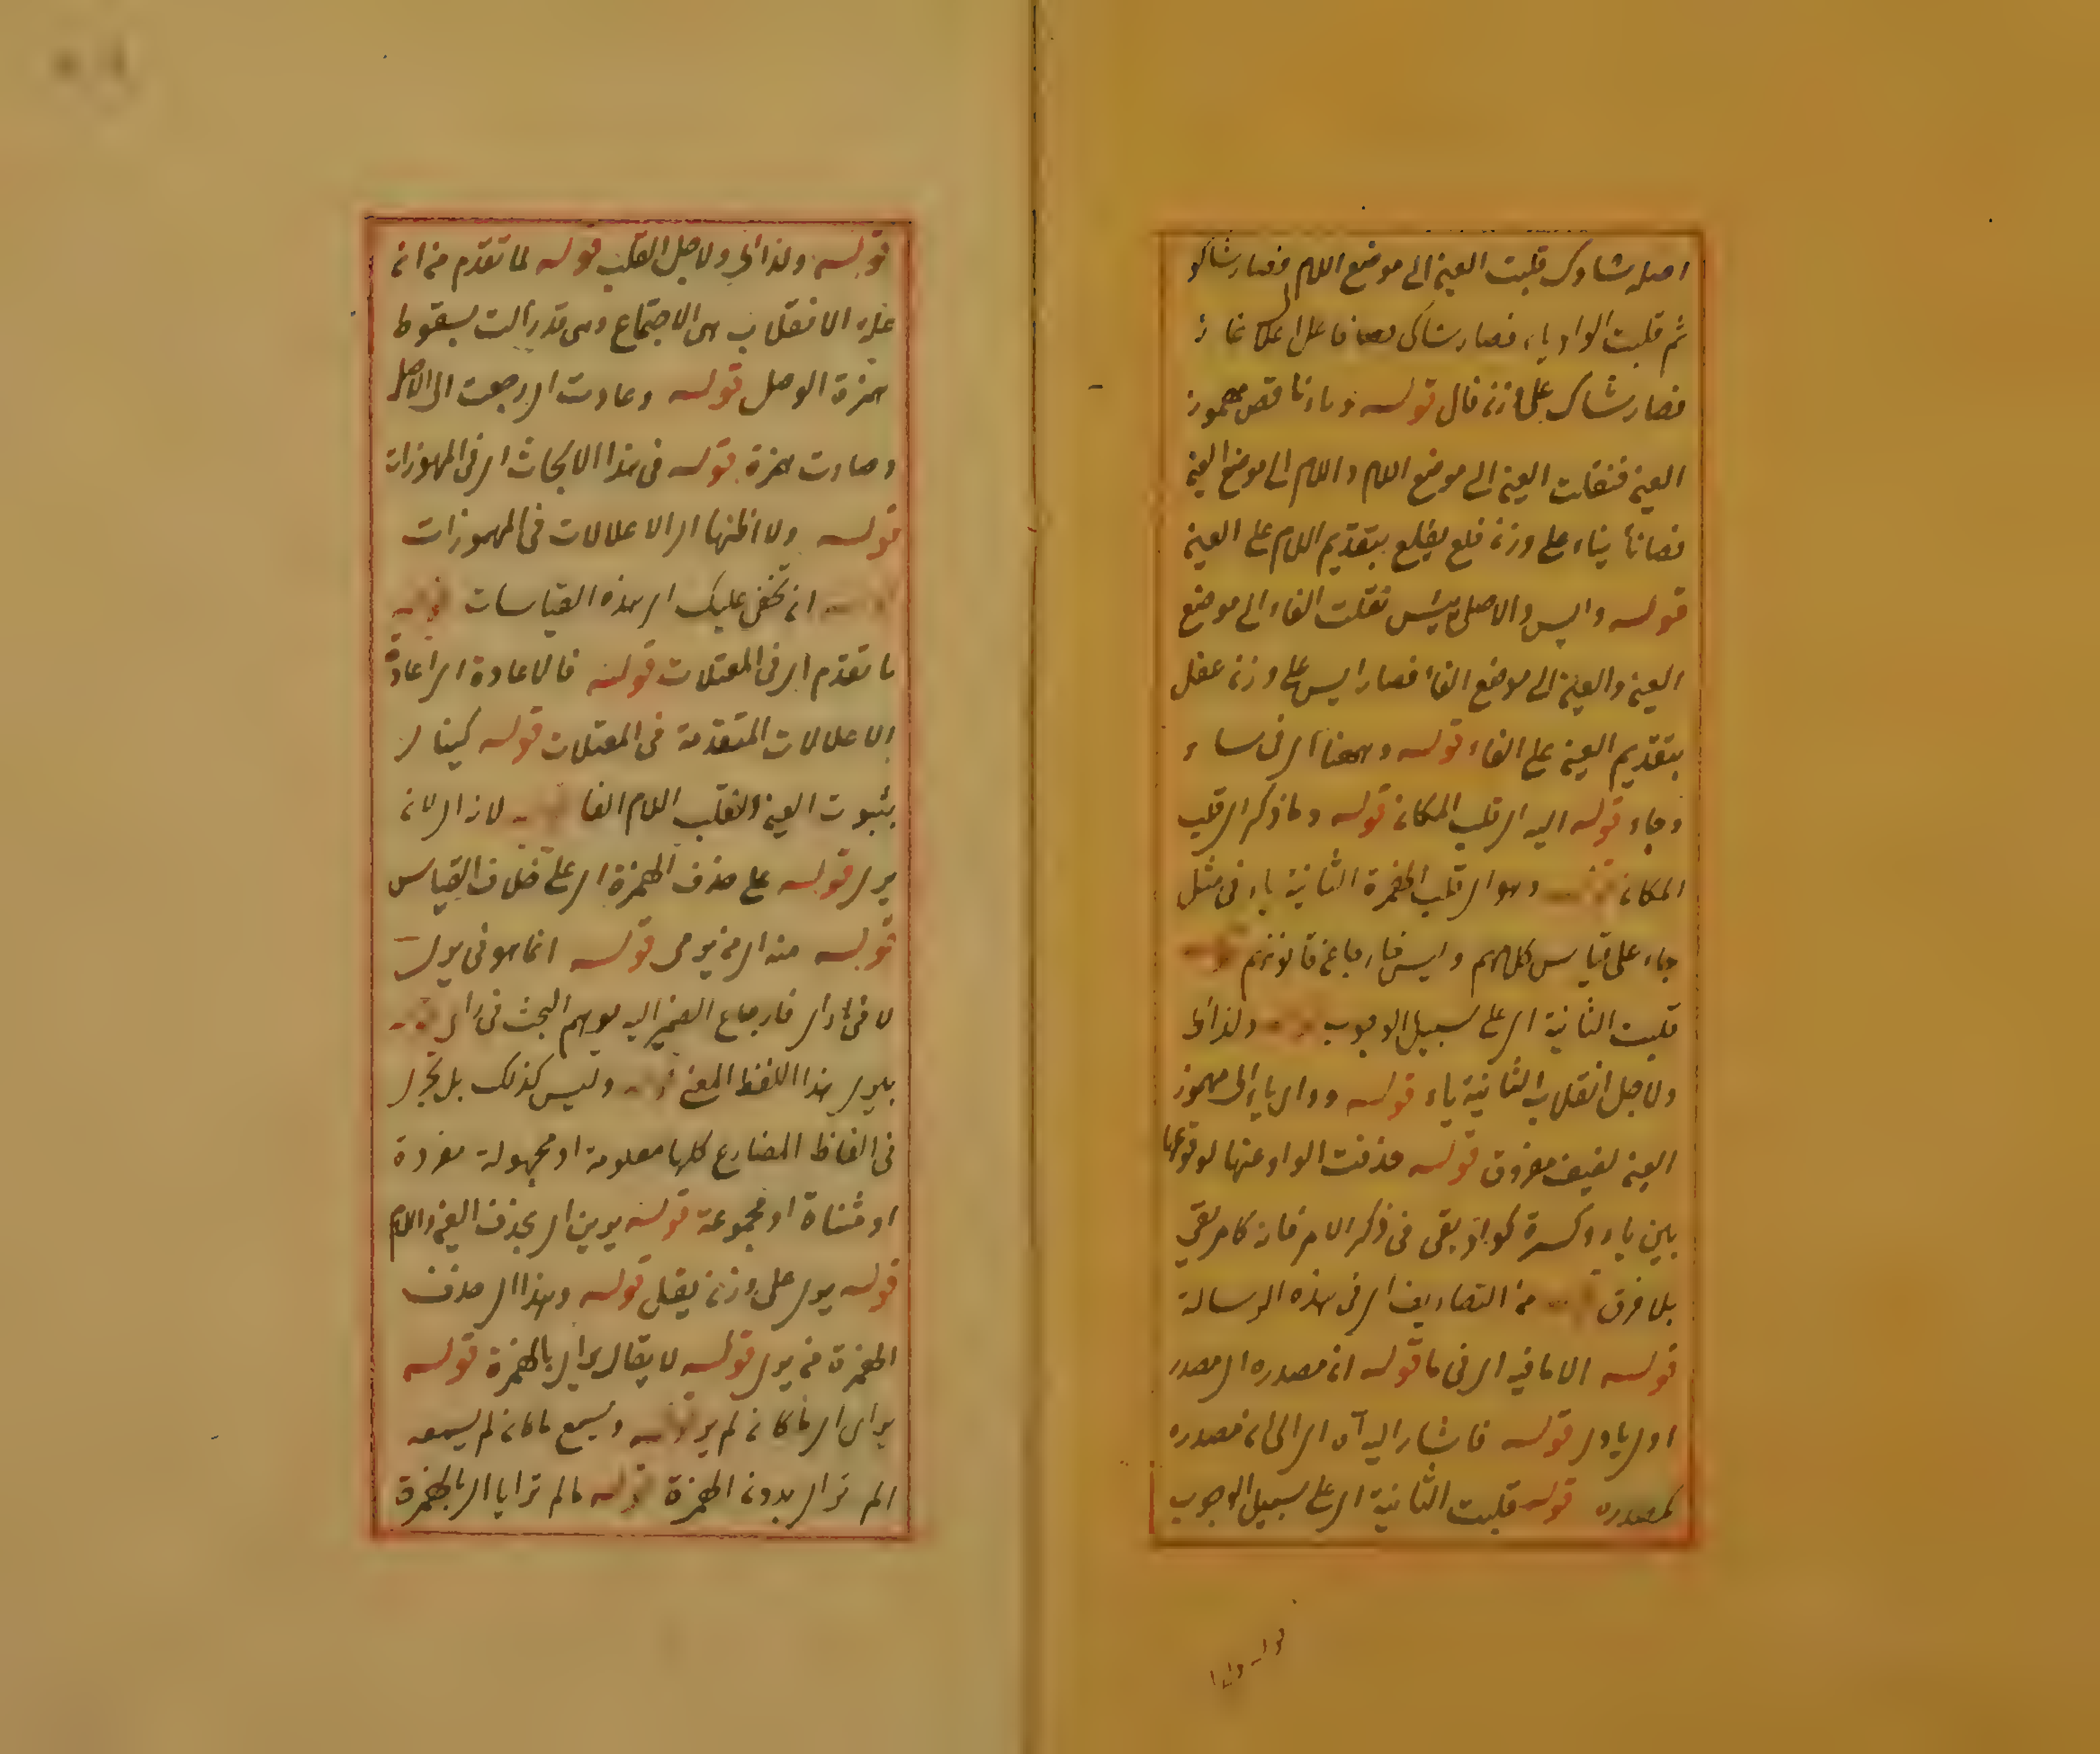 اصله شاوك قلبت العين الى موضع اللام فصار شاكو
ثم قلبت الواو ياء فصار شاكي فاعل اعلال غاز
فصار شاك على وزن فال قوله وناء ناقص مهموز
العين فنقلت العين الى موضع اللام واللام الى موضع العين
يناء على وزن فلع يفلع بتقديم اللام على العين
قوله وايس والاصل يئس نقلت الفاء الى موضع
العين والعين الى موضع الفاء فصار ايس على وزن عفل
بتقديم العين على الفاء قوله وههنا اى فى ساء
وجاء قوله اليه اى قلب المكان قوله وما ذكر اى قلب
المكان قوله وهو اى قلب الهمزة الثانية ياء فى مثل
جاء على قياس كلامهم وليس خارجا عن قانونهم قوله
قلبت الثانية اى على سبيل الوجوب قوله ولذا اى
ولاجل انقلاب الثانية ياء قوله ووأى يإى مهموز
العين لفيف مفروق قوله حذفت الواو عنها لوقوعها
بين ياء وكسرة كوقى يقى فى ذكر الامر فانه كامر يقى
بلا فرق قوله من التصاريف اى فى هذه الرسالة
قوله الا ما فيه اى فى ما قوله ان مصدره اى مصدر
اوى ياوى قوله فاشار اليه آه اى الى ان مصدره
كمصدره قوله قلبت الثانية اى على سبيل الوجوب
قوله ولذا
قوله ولذا اى ولاجل القلب قوله لما تقدم من ان
علة الانقلاب هى الاجتماع وهى قد زالت بسقوط
همزة الوصل قوله وعادت اى رجعت الى الاصل
وصارت همزة قوله فى هذا الابحاث اى فى المهموزات
قوله ولا اظنها اى الاعلالات فى المهموزات
قوله ان تخفى عليك اى هذه القياسات قوله
ما تقدم اى فى المعتلات قوله فالاعادة اى اعادة
الاعلالات المتقدمة فى المعتلات قوله كينأى
بثبوت العين وانقلب اللام الفا قوله لان اى لانه
يرى قوله على حذف الهمزة اى على خلاف القياس
قوله منه اى من يرى قوله انما هو فى يرى
لا فى رأى فارجاع الضمير اليه يوهم البحث فى رأى قوله
بيرى هذا اللفظ المعين قوله وليس كذلك بل يجرى
فى الفاظ المضارع كلها معلومة او مجهولة مفردة
او مثناة او مجموعة قوله يرين اى بحذف العين واللام
قوله يرى على وزن يفل قوله وهذا اى حذف
الهمزة من يرى قوله لا يقال يرأى بالهمزة قوله
يرأى اى ما كان لم ير قوله ويسمع ما كان لم يسمعه
الم تر اى بدون الهمزة قوله مالم ترأيا اى بالهمزة